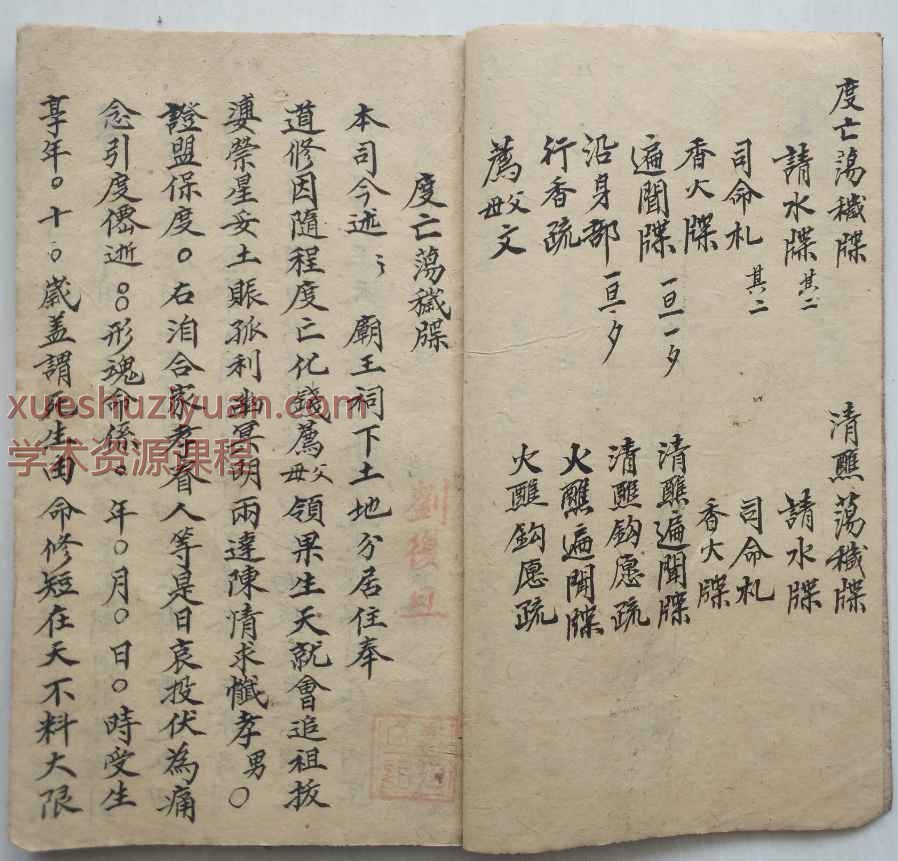 度亡蕩穢牒
請水牒其二
司命札其二
香火牒
遍聞牒一旦一夕
沿身部一旦一夕
行香疏
薦父母文
清醮蕩穢牒
請水牒
司命札
香火牒
清醮遍聞牒
清醮鈎愿疏
火醮遍聞牒
火醮鈎愿疏
度亡蕩穢牒
本司今述 廟王祠下土地分居住奉
道修因隨程度亡化錢薦父母領果生天就會追祖拔
婆禜星妥土賑孤利幽冥明兩達陳情求懺孝男〇
證盟保度〇右洎合家孝眷人等是日哀投伏為痛
念引度僊逝〇〇形魂命係〇年〇月〇日〇時受生
享年〇十〇歲盖謂死生由命修短在天不料大限
劉復
xueshuziyuan.com
学术资源课程